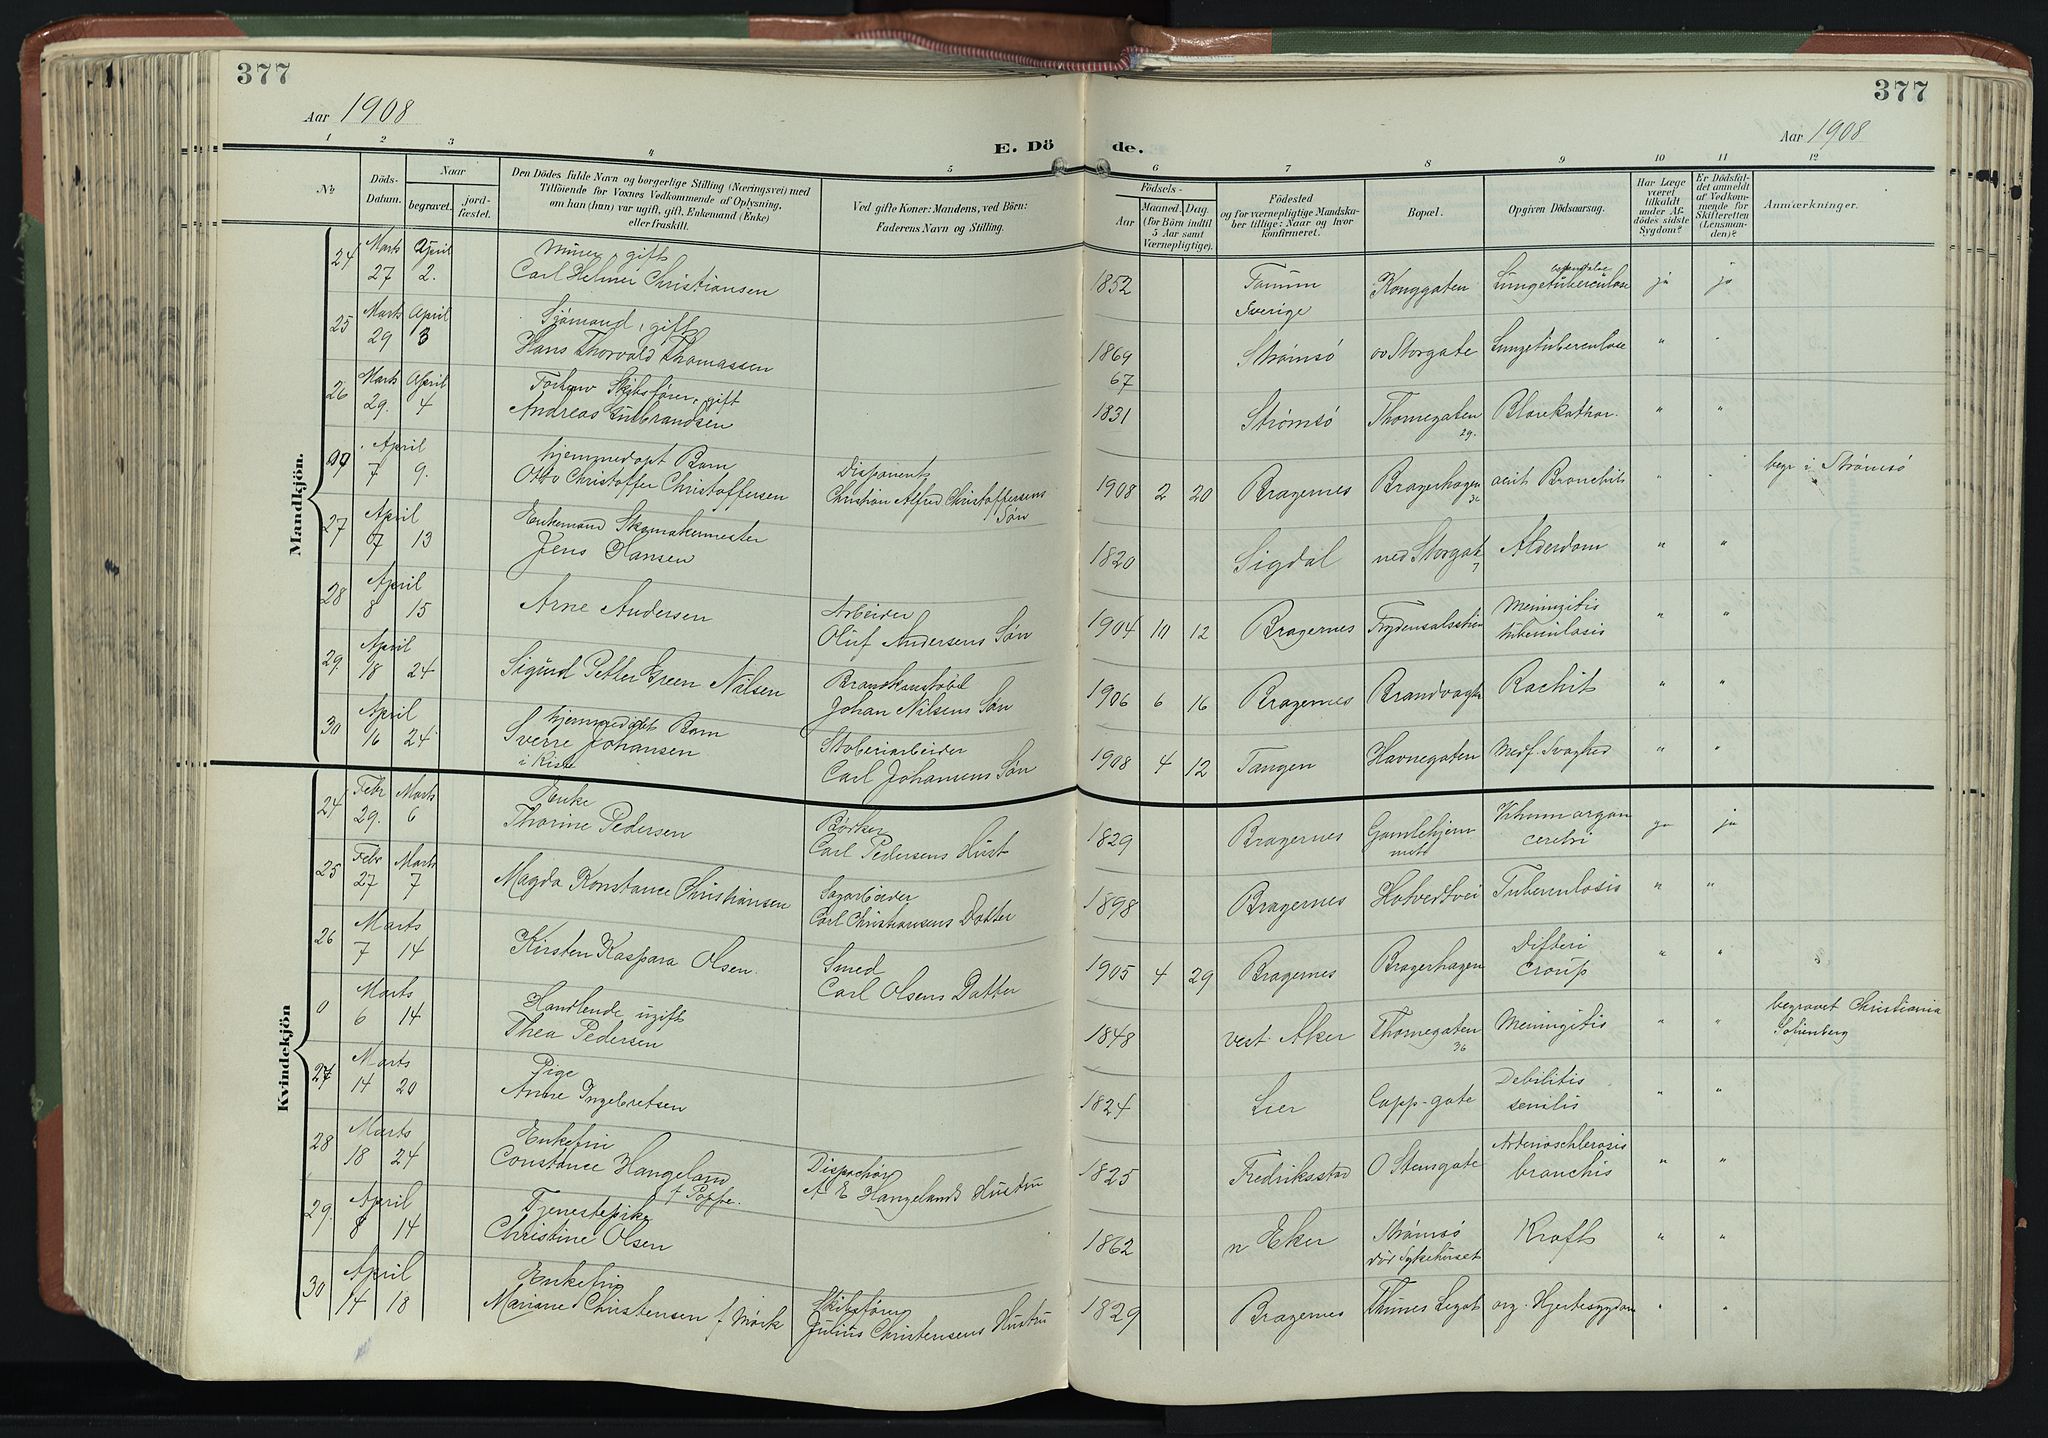 377
377
Aar 1908
Aar 1908
E. Dö de.
1 2 3 4 5 6 7 8 9 10 11 12
No
Döds-Datum.
Naar
begravet.
jord-fæstet.
Den Dödes fulde Navn og borgerlige Stilling (Næringsvei) med
Tilföiende for Voxnes Vedkommende af Oplysning,
om han (hun) var ugift, gift, Enkemand (Enke)
eller fraskilt.
Ved gifte Koner: Mandens, ved Börn:
Faderens Navn og Stilling.
Födsels-
Aar
Maaned. Dag.
(for Börn indtil
5 Aar samt
Værnepligtige).
Födested
og for værnepligtige Mandska-
ber tillige: Naar og hvor
konfirmeret.
Bopæl.
Opgiven Dödsaarsag.
Har Læge
været
tilkaldt
under Af-
dödes sidste
Sygdom?
Er Dödsfal-
det anmeldt
af Vedkom-
mende for
Skifteretten
(Lensman-
den)?
Anmærkninger.
Mandkjön.
24 Marts April Murer, gift
27 2. Carl Helmer Christiansen 1852 Tanum Konggaten Lungetuberculose ja ja
Sverige
25 Marts April Sjömand, gift
29 3 Hans Thorvald Thomassen 1869 Strømsö ov Storgate Lungetuberculose " "
67
26 Marts April Skibsfører, gift
29. 4 Andreas Gulbrandsen 1831 Strømsö Thornegaten Blærekathar. " "
29.
April hjemmedøpt Barn Disponent
7 9. Otto Christoffer Christoffersen Christian Alfred Christoffersens Søn 1908 2 20 Bragernes Bragerhagen acut Bronchit " " begr i Strømsö
27 April Enkemand Skomakermester
7 13 Jens Hansen 1820 Sigdal ned Storgat 7 Alderdom " "
28 April Arbeider
8 15 Arne Andersen Oluf Andersens Søn 1904 10 12 Bragernes Meningitis tuberculosis " "
29. April Brandkonstabel
18 24 Sigurd Petter Green Nilsen Johan Nilsens Søn 1906 6 16 Bragernes Brandvagt Rachit " "
30 April hjemmedøbt Barn
16 24 Sverre Johansen Carl Johansens Søn 1908 4 12 Tangen Havnegaten Medf. Svaghed " "
i Kiste
Kvindekjön
24 Febr Marts Enke
29. 6 Thorine Pedersen Carl Pedersens Hust 1829 Bragernes Gamlehjem cerebri ja ja
25 Febr Marts Sagarbeider
27 7 Magda Konstance Christiansen Carl Christiansens Datter 1898 Bragernes Hotvedtvei Tuberculosis " "
26 Marts Smed
7 14 Kirsten Kaspara Olsen. Carl Olsens Datter 1905 4 29 Bragernes Bragerhagen Difteri croup " "
0 Marts Handlende ugift
6 14 Thea Pedersen 1848 vest. Aker Thornegaten 36 Meningitis " " begravet Christiania Sofienberg
27 Marts Pige
14 20 Anne Ingebretsen 1824 Lier Capp-gate Debilitis senilis " "
28 Marts Enkefru
18 24 Constance Hangeland Dispachör
f Poppe. A E Hangelands Hustru 1825 Fredriksstad O Stensgate Arterioschlerosis branchis " "
29. April Tjenestepike
8 14 Christine Olsen 1862 n Eker Strømsö Sykehuset Kræft " "
30 April Enkefru Skibsfører
14 18 Mariane Christensen f Mörk Julius Christensens Hustru 1829 Bragernes Thunes Legat org. Hjertesygdom " "